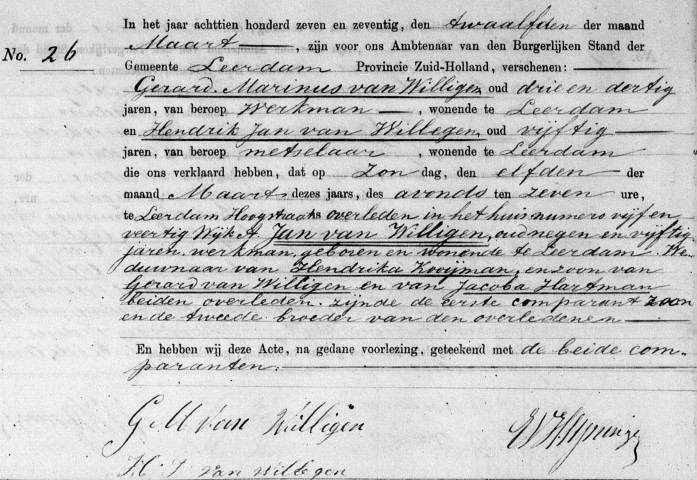 In het jaar achttien honderd zeven en zeventig, den twaalfden der maand
No. 26
Maart, zijn voor ons Ambtenaar van den Burgerlijken Stand der
Gemeente Leerdam Provincie Zuid-Holland, verschenen:
Gerard Marinus van Willigen, oud drie en dertig
jaren, van beroep Werkman, wonende te Leerdam
en Hendrik Jan van Willegen, oud vijftig
jaren, van beroep metselaar, wonende te Leerdam
die ons verklaard hebben, dat op Zondag, den elfden der
maand Maart dezes jaars, des avonds ten zeven ure,
te Leerdam Hoogstraat is overleden in het huis numero vijf en
veertig Wijk A, Jan van Willigen, oud negen en vijftig
jaren, werkman, geboren en wonende te Leerdam. We-
duwnaar van Hendrika Kooyman, en zoon van
Gerard van Willigen en van Jacoba Hartman
beiden overleden. zijnde de eerste comparant zoon
en de tweede broeder van den overledenen
En hebben wij deze Acte, na gedane voorlezing, geteekend met de beide com-
paranten.
G M van Willigen
H. J. van willegen